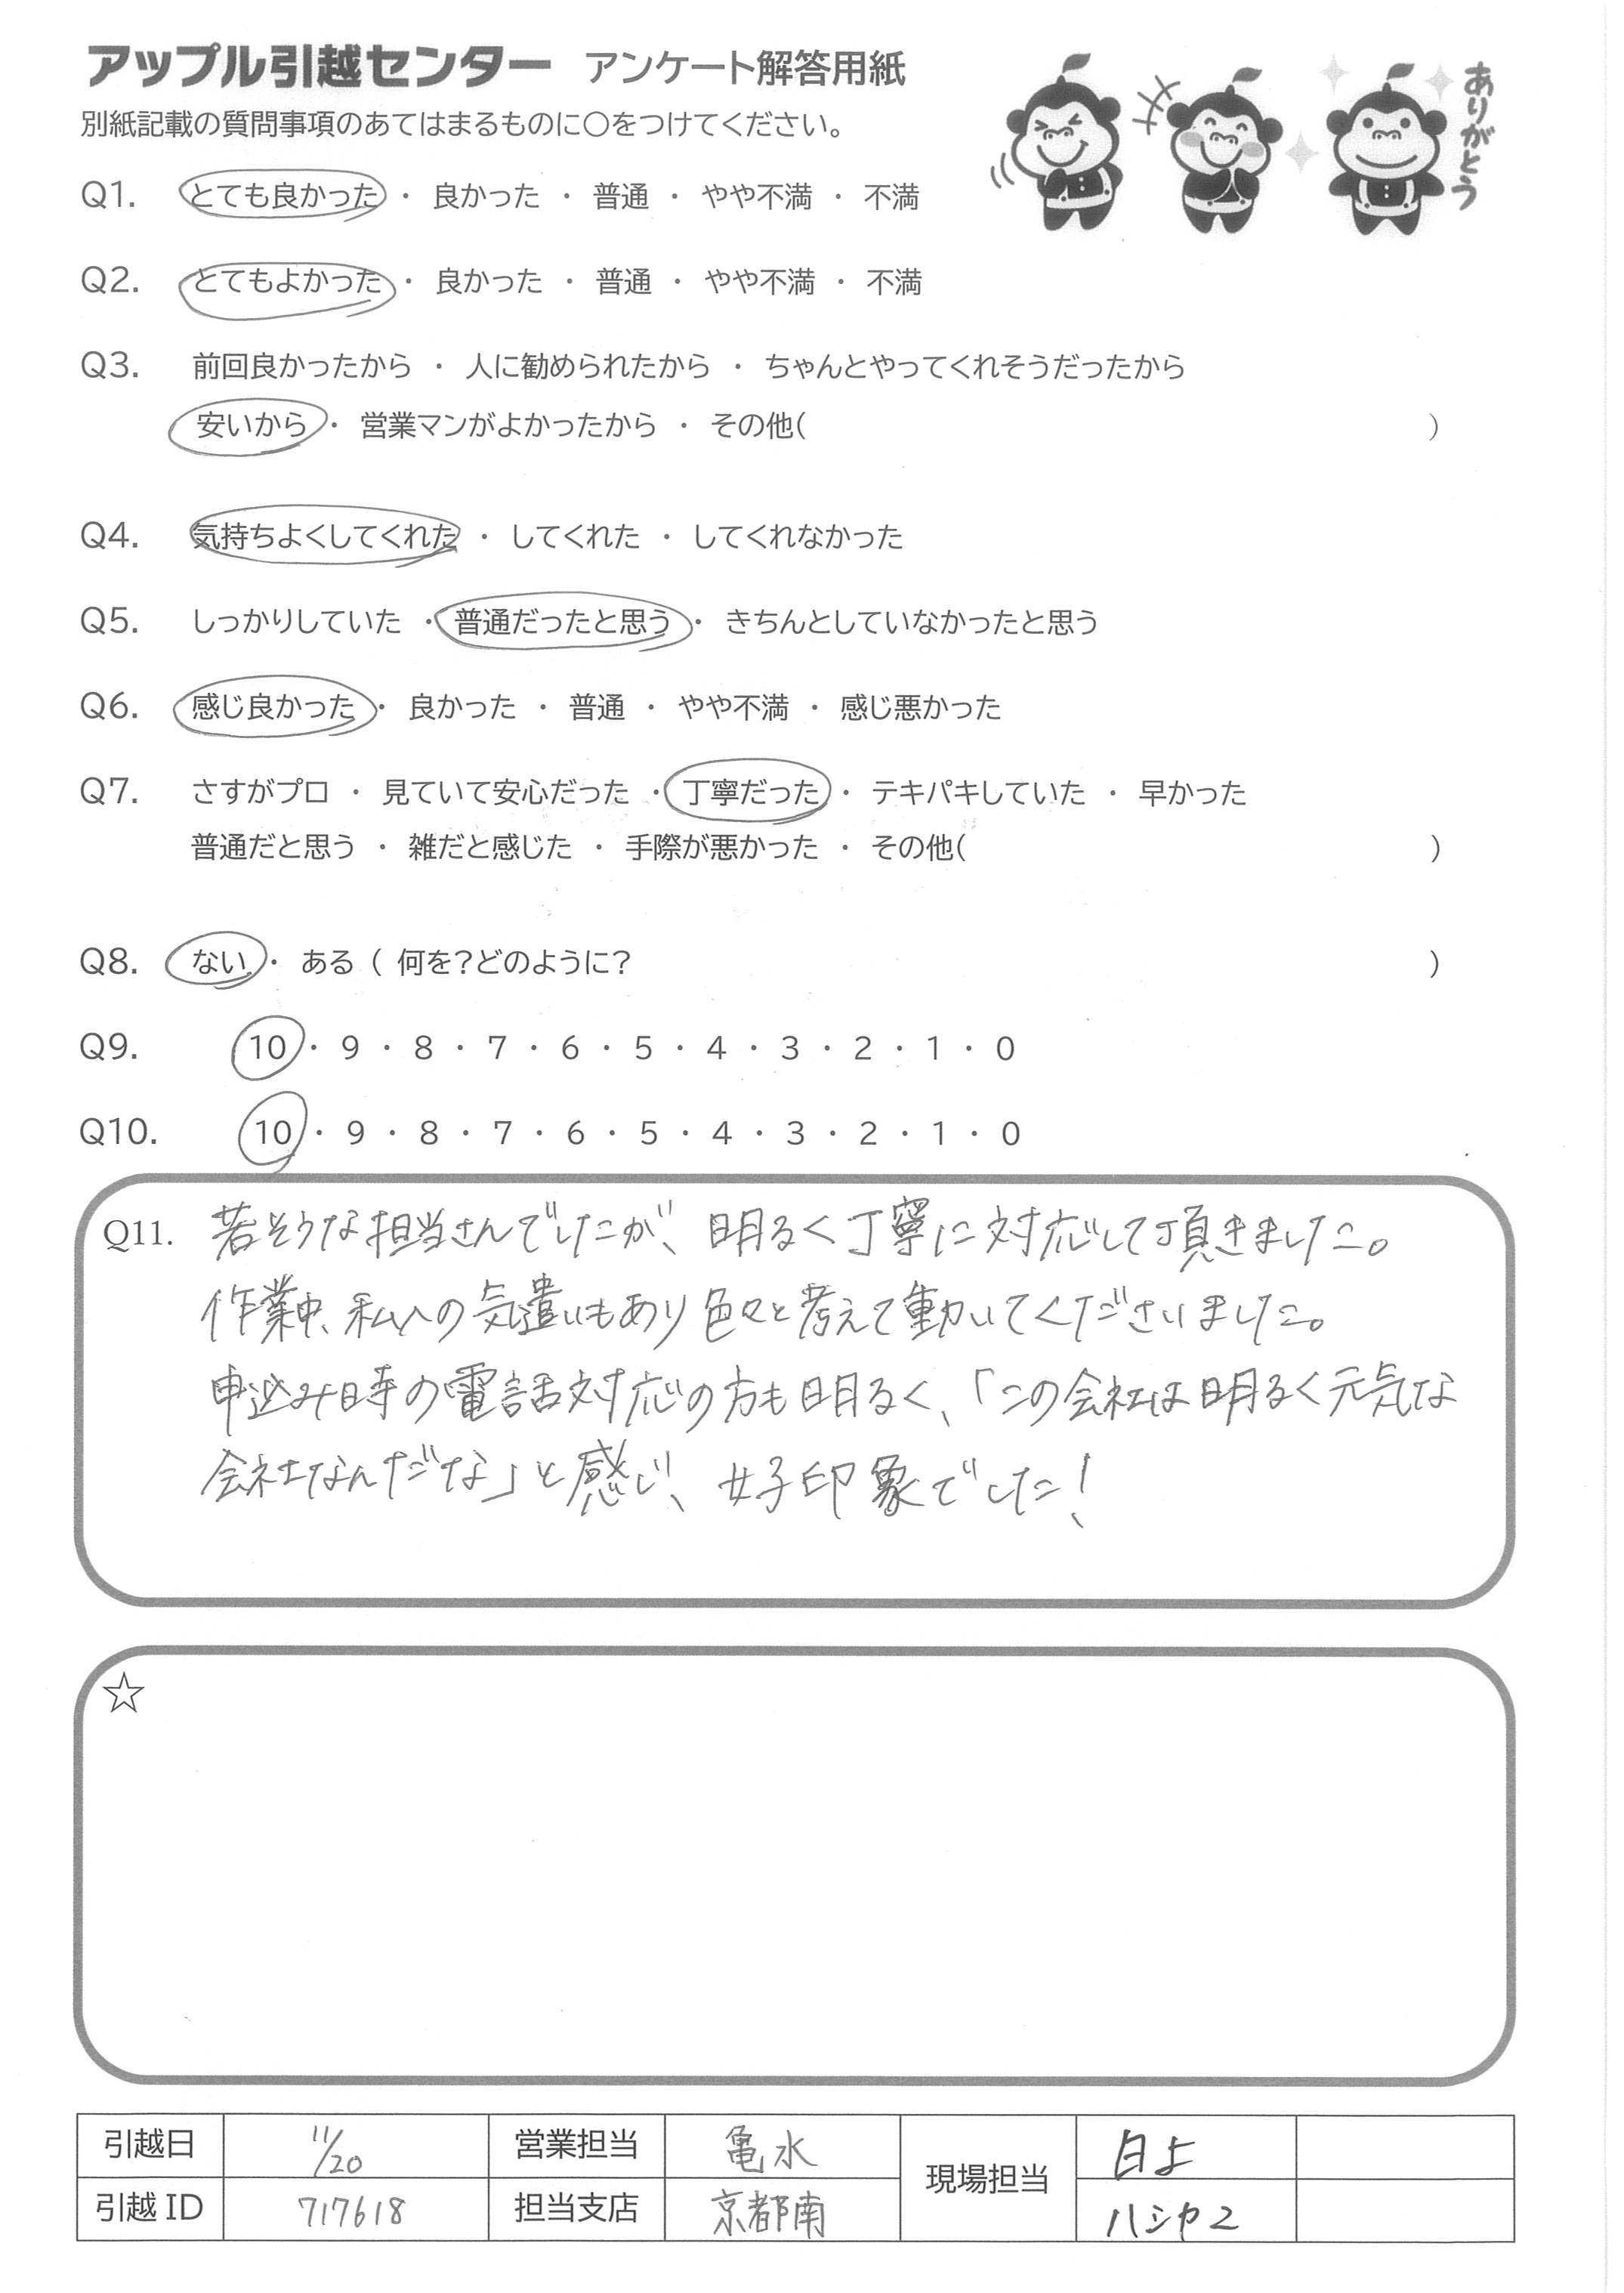 アップル引越センター アンケート解答用紙
別紙記載の質問事項のあてはまるものに〇をつけてください。
ありがとう
Q1. とても良かった ・ 良かった ・ 普通 ・ やや不満 ・ 不満
Q2. とてもよかった ・ 良かった ・ 普通 ・ やや不満 ・ 不満
Q3. 前回良かったから ・ 人に勧められたから ・ ちゃんとやってくれそうだったから
安いから ・ 営業マンがよかったから ・ その他( )
Q4. 気持ちよくしてくれた ・ してくれた ・ してくれなかった
Q5. しっかりしていた ・ 普通だったと思う ・ きちんとしていなかったと思う
Q6. 感じ良かった ・ 良かった ・ 普通 ・ やや不満 ・ 感じ悪かった
Q7. さすがプロ ・ 見ていて安心だった ・ 丁寧だった ・ テキパキしていた ・ 早かった
普通だと思う ・ 雑だと感じた ・ 手際が悪かった ・ その他( )
Q8. ない ・ ある ( 何を?どのように? )
Q9. 10 ・ 9 ・ 8 ・ 7 ・ 6 ・ 5 ・ 4 ・ 3 ・ 2 ・ 1 ・ 0
Q10. 10 ・ 9 ・ 8 ・ 7 ・ 6 ・ 5 ・ 4 ・ 3 ・ 2 ・ 1 ・ 0
Q11. 若そうな担当さんでしたが、明るく丁寧に対応して頂きました。
作業中、私への気遣いもあり色々と考えて動いてくださいました。
申込み時の電話対応の方も明るく、「この会社は明るく元気な
会社なんだな」と感じ、好印象でした!
☆
引越日 11/20 営業担当 亀水 現場担当
引越ID 717618 担当支店 京都南